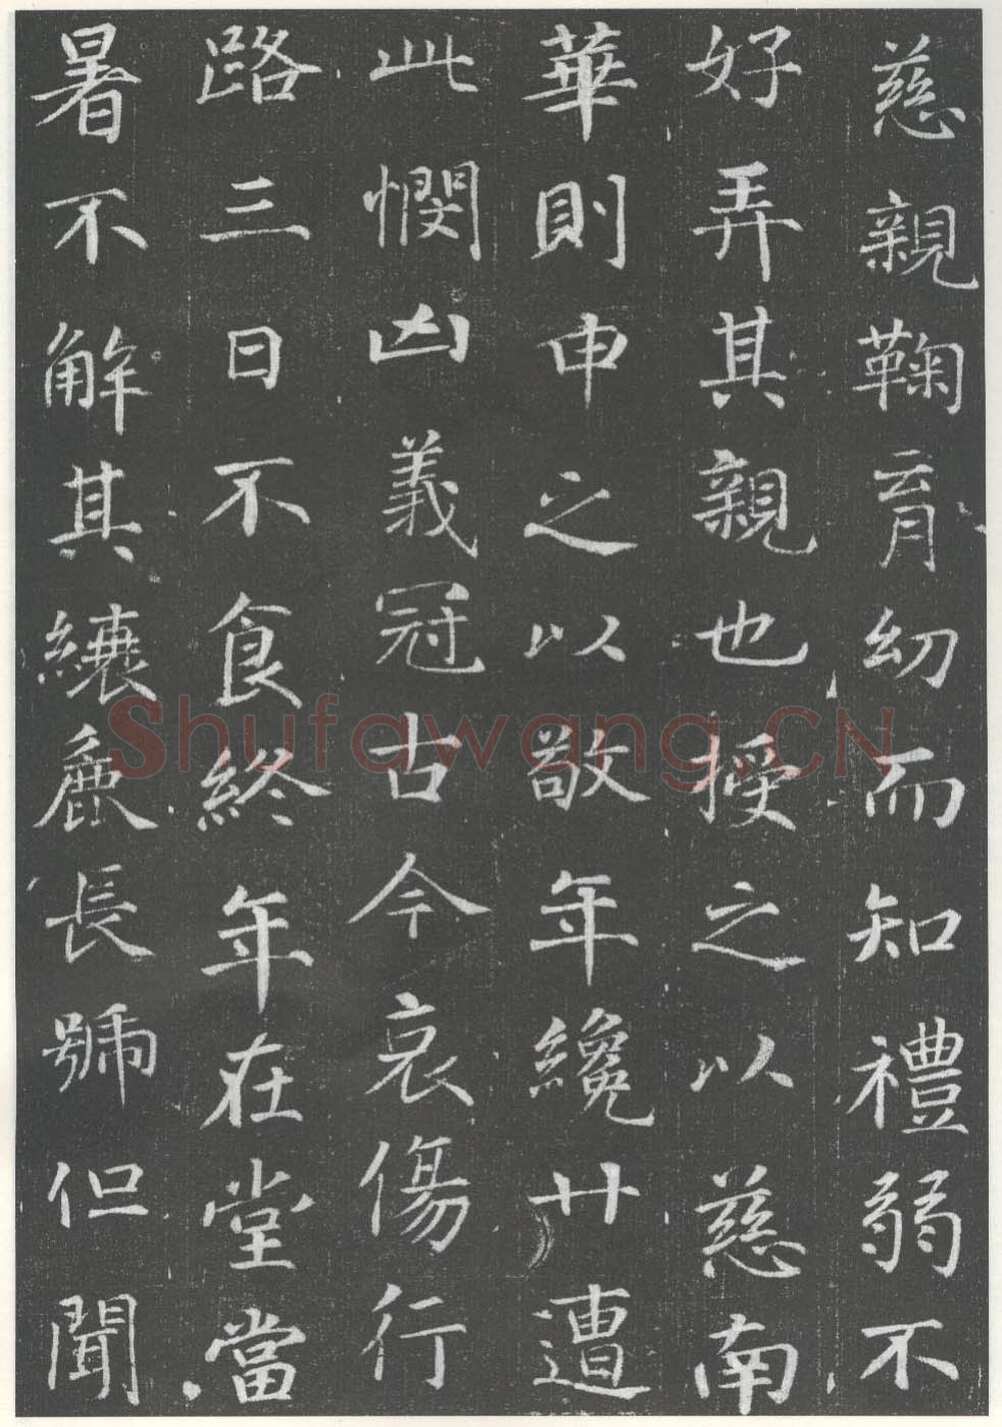 慈親鞠育幼而知禮弱不
好弄其親也授之以慈南
華則申之以敬年纔廿遭
此憫凶義冠古今哀傷行
路三日不食終年在堂當
暑不解其纕麁長號但聞
Shufawang.CN